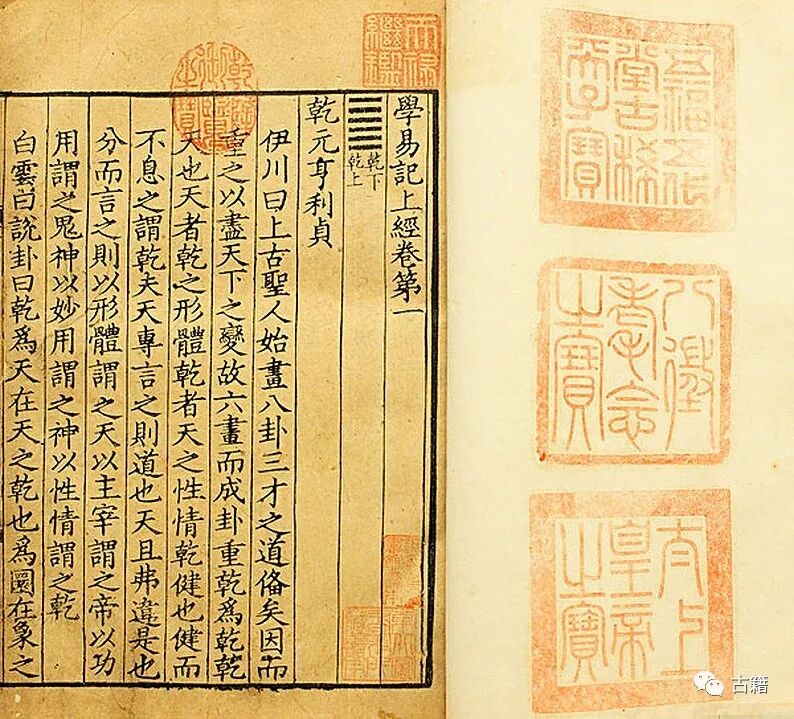 五福五代
堂古稀
天子寶
八徵
耄念
之寶
太上
皇帝
之寶
天祿
繼鑑
乾隆
御覽
之寶
學易記上經卷第一
乾下
乾上
乾元亨利貞
伊川曰上古聖人始畫八卦三才之道俻矣因而
重之以盡天下之變故六畫而成卦重乾爲乾乾
天也天者乾之形體乾者天之性情乾健也健而
不息之謂乾夫天專言之則道也天且弗違是也
分而言之則以形體謂之天以主宰謂之帝以功
用謂之鬼神以妙用謂之神以性情謂之乾
白雲曰說卦曰乾爲天在天之乾也爲圜在象之
古籍